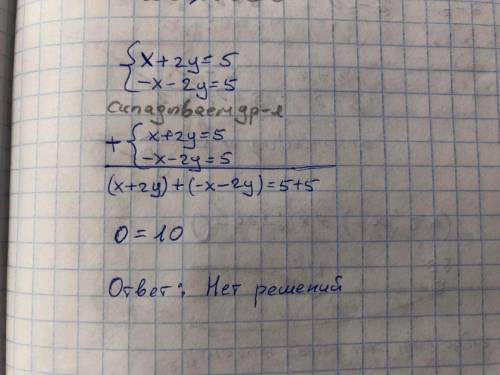 x + 2y = 5
-x - 2y = 5
складываем ур-я
+ x + 2y = 5
-x - 2y = 5
(x+2y) + (-x-2y) = 5+5
0 = 10
Ответ: Нет решений